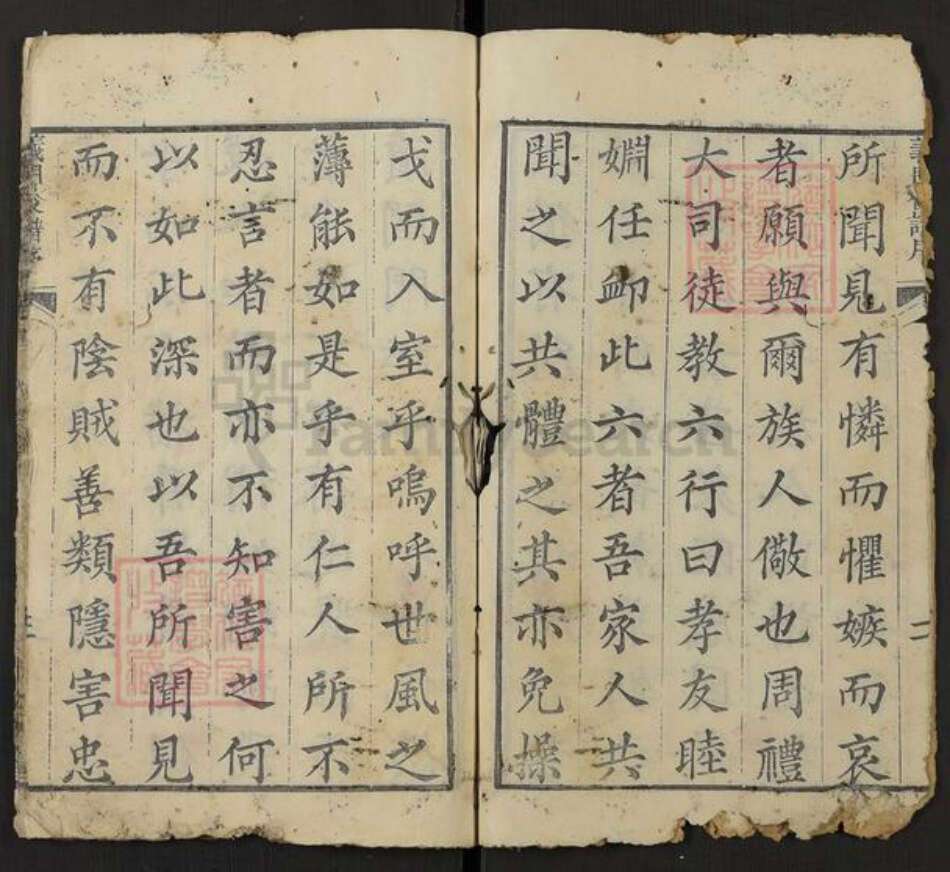 所聞見有憐而懼嫉而哀
者願與爾族人儆也周禮
大司徒教六行曰孝友睦
婣任卹此六者吾家人共
聞之以共體之其亦免操
戈而入室乎嗚呼世風之
薄能如是乎有仁人所不
忍言者而亦不知害之何
以如此深也以吾所聞見
而不有陰賊善類隱害忠
FamilySearch